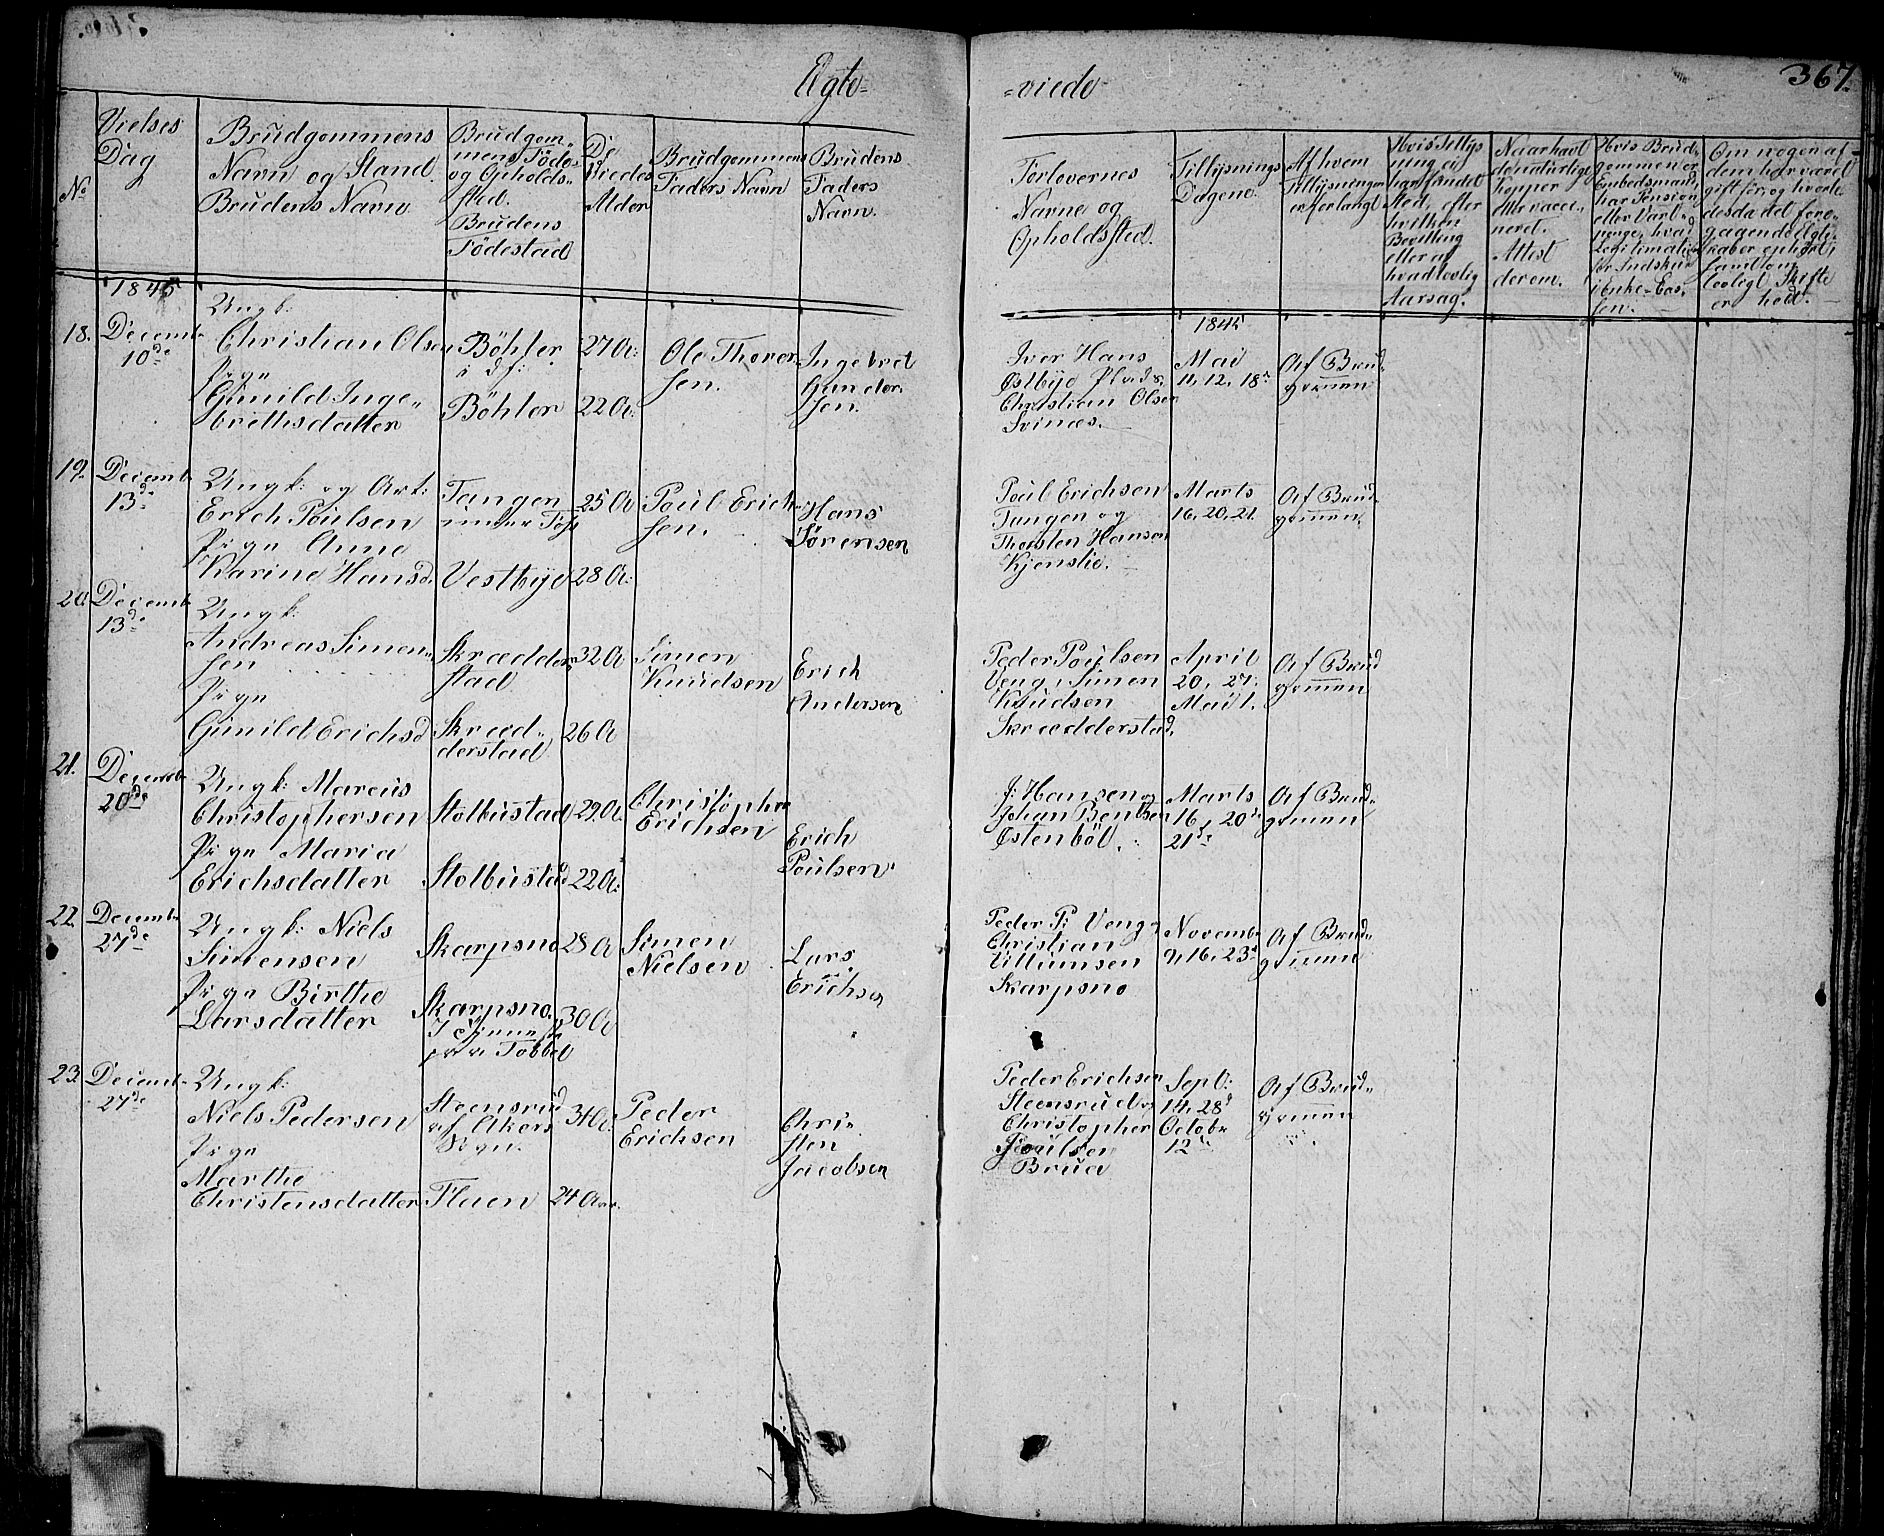 Egte=
=viede
367.
No
Vielses
Dag
Brudgommens
Navn og Stand.
Brudens Navn
Brudgom-
mens Føde-
og Opholds-
sted.
Brudens
Fødestad
De
Viedes
Alder
Brudgommens
Faders Navn
Brudens
Faders
Navn.
Forlovernes
Navne og
Opholdssted.
Tillysnings
Dagene.
Af hvem
Tillysningen
er forlangt
Hvis Tillys
ning ei
har fundet
Sted, efter
hvilken
Bevilling
eller af
hvad lovlig
Aarsag.
Naar havt
de naturlige
Kopper
eller vacci-
neret.
Attest
derom.
Hvis Brud-
gommen er
Embedsmand,
har Pension
eller Vart-
penge, hvad
Legitimation
for Indskud
i Enke-Cas-
sen.
Om nogen af
dem har været
gift før, og hvorle
des da det fore-
gaaende Egte-
skaber ophørt,
samt om
lovligt Skifte
er holdt.
1845
18. Decemb
10de
Ungk:
Christian Olsen
Pige
Gunild Inge-
brettisdatter
Böhler
i df:
Böhler
27 A:
22 A:
Ole Thorer
sen.
Ingebret
Gunder
sen.
1845
Iver Hans
Østbye Plads
Christian Olsen
Svinæs.
Mai
11, 12, 18
Af Brud-
gommen
19. Decemb
13de
Ungk: og Art:
Erich Poulsen
Pige Anne
Karine Hansd.
Tangen
under
Vestbye
25 A
28 A:
Poul Erich-
sen.
Hans
Sørensen
Poul Erichsen
Tangen og
Thorsten Hansen
Kjenslie.
Marts
16, 20, 21.
Af Brud-
gommen
20 Decemb
13de
Ungk:
Andreas Simen-
sen
Pige
Gunild Erichsd
Skrædder
stad
Skræd-
derstad
32 A
26 A
Simen
Knudsen
Erich
Andersen
Peder Poulsen
Veng, Simen
Knudsen
Skrædderstad.
April
20, 27.
Mai 1.
Af Brud
gommen
21. Decemb
20de
Ungk: Marcus
Christophersen
Pige Maria
Erichsdatter
Stolbustad
Stolbustad
29 A.
22 A:
Christopher
Erichsen
Erich
Poulsen
J: Hansen og
Johan Bentsen
Østenböl.
Marts
16, 20
21de
Af Brud-
gommen
22. Decemb
27de
Ungk: Niels
Simensen
Pige Birthe
Larsdatter
Skarpsno
Skarpsno.
28 A
30 A
Simen
Nielsen
Lars
Erichsen
Peder P: Veng
Christian
Skarpsno
Novemb
9, 16, 23
Af Brud-
gommen
23. Decemb
27de
Ungk:
Niels Pedersen
Pige
Marthe
Christensdatter
Steensrud
af Akers
Sogn.
Fluen
24 Aar.
Peder
Erichsen
Chri-
sten
Jacobsen
Peder Erichsen
Steensrud og
Christopher
Poulsen
Brua
Sept:
14, 28
Octobr
12te
Af Brud-
gommen